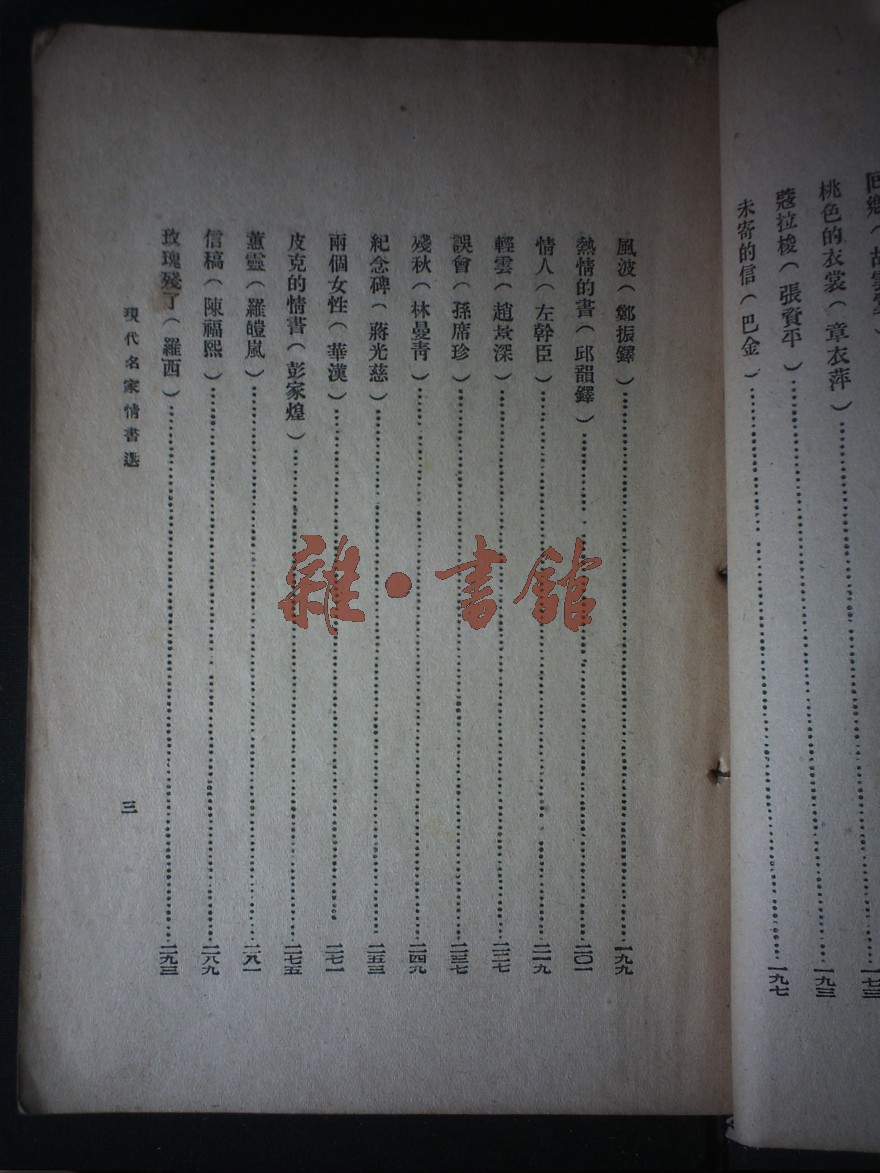 回鄉（胡雲翼）……一七三
桃色的衣裳（章衣萍）……一九三
蔻拉梭（張資平）……一九七
未寄的信（巴金）……
風波（鄭振鐸）……一九九
熱情的書（邱韻鐸）……二〇一
情人（左幹臣）……二一九
輕雲（趙景深）……二二七
誤會（孫席珍）……二三七
殘秋（林曼青）……二四九
紀念碑（蔣光慈）……二五三
兩個女性（華漢）……二七一
皮克的情書（彭家煌）……二七五
蕙靈（羅皚嵐）……二八一
信稿（陳福熙）……二八九
玫瑰殘了（羅西）……二九三
現代名家情書選
三
雜·書館